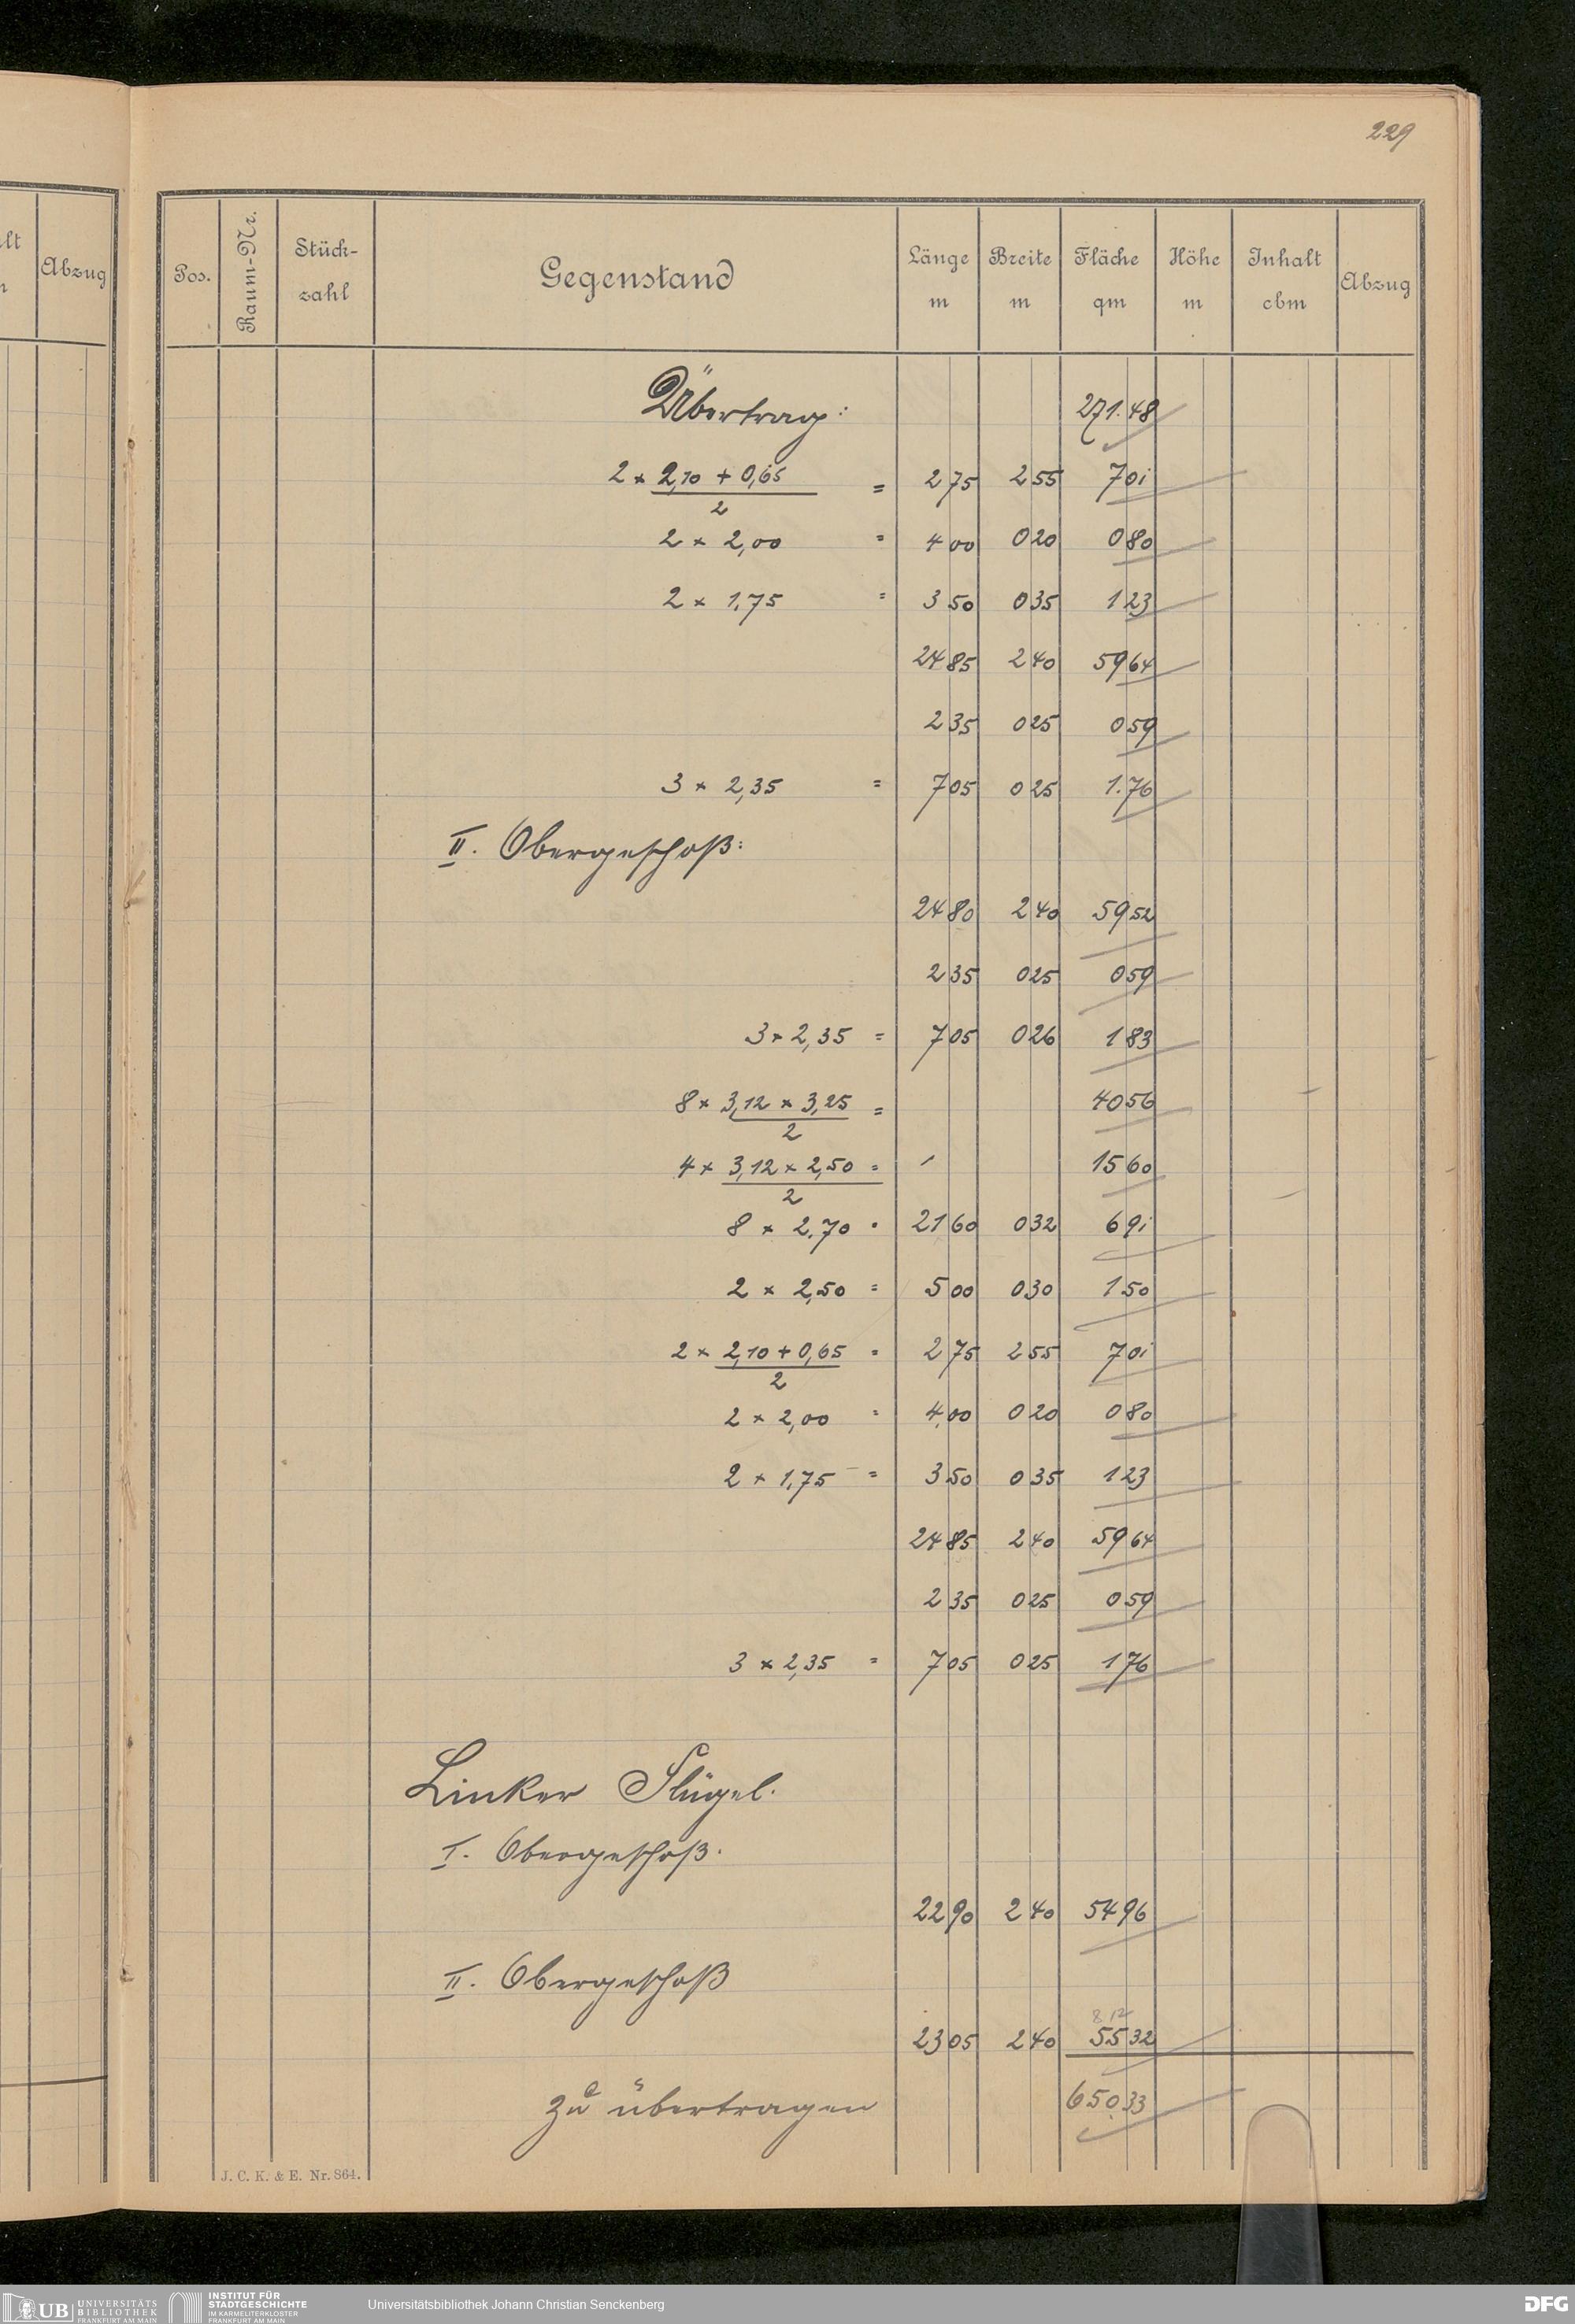 229
lt
Abzug
Pos.
Raum-Nr.
Stück-
zahl
Gegenstand
Länge
m
Breite
m
Fläche
qm
Höhe
m
Inhalt
cbm
Abzug
Übertrag: 271.48
2 × 2,10 + 0,65 / 2 = 2 75 2 55 7 01
2 × 2,00 = 4 00 0 20 0 80
2 × 1,75 = 3 50 0 35 1 23
24 85 2 40 59 64
2 35 0 25 0 59
3 × 2,35 = 7 05 0 25 1.76
II. Obergeschoß:
24 80 2 40 59 52
2 35 0 25 0 59
3 × 2,35 = 7 05 0 26 1 83
8 × 3,12 × 3,25 / 2 = 40 56
4 × 3,12 × 2,50 / 2 = 15 60
8 × 2,70 = 21 60 0 32 6 91
2 × 2,50 = 5 00 0 30 1 50
2 × 2,10 + 0,65 / 2 = 2 75 2 55 7 01
2 × 2,00 = 4,00 0 20 0 80
2 × 1,75 = 3 50 0 35 1 23
24 85 2 40 59 64
2 35 0 25 0 59
3 × 2,35 = 7 05 0 25 1 76
Linker Flügel.
I. Obergeschoß.
22 90 2 40 54 96
II. Obergeschoß
8 12
23 05 2 40 55 32
zu übertragen 650.33
J. C. K. & E. Nr. 864.
UB UNIVERSITÄTS
BIBLIOTHEK
FRANKFURT AM MAIN
INSTITUT FÜR
STADTGESCHICHTE
IM KARMELITERKLOSTER
FRANKFURT AM MAIN
Universitätsbibliothek Johann Christian Senckenberg
DFG